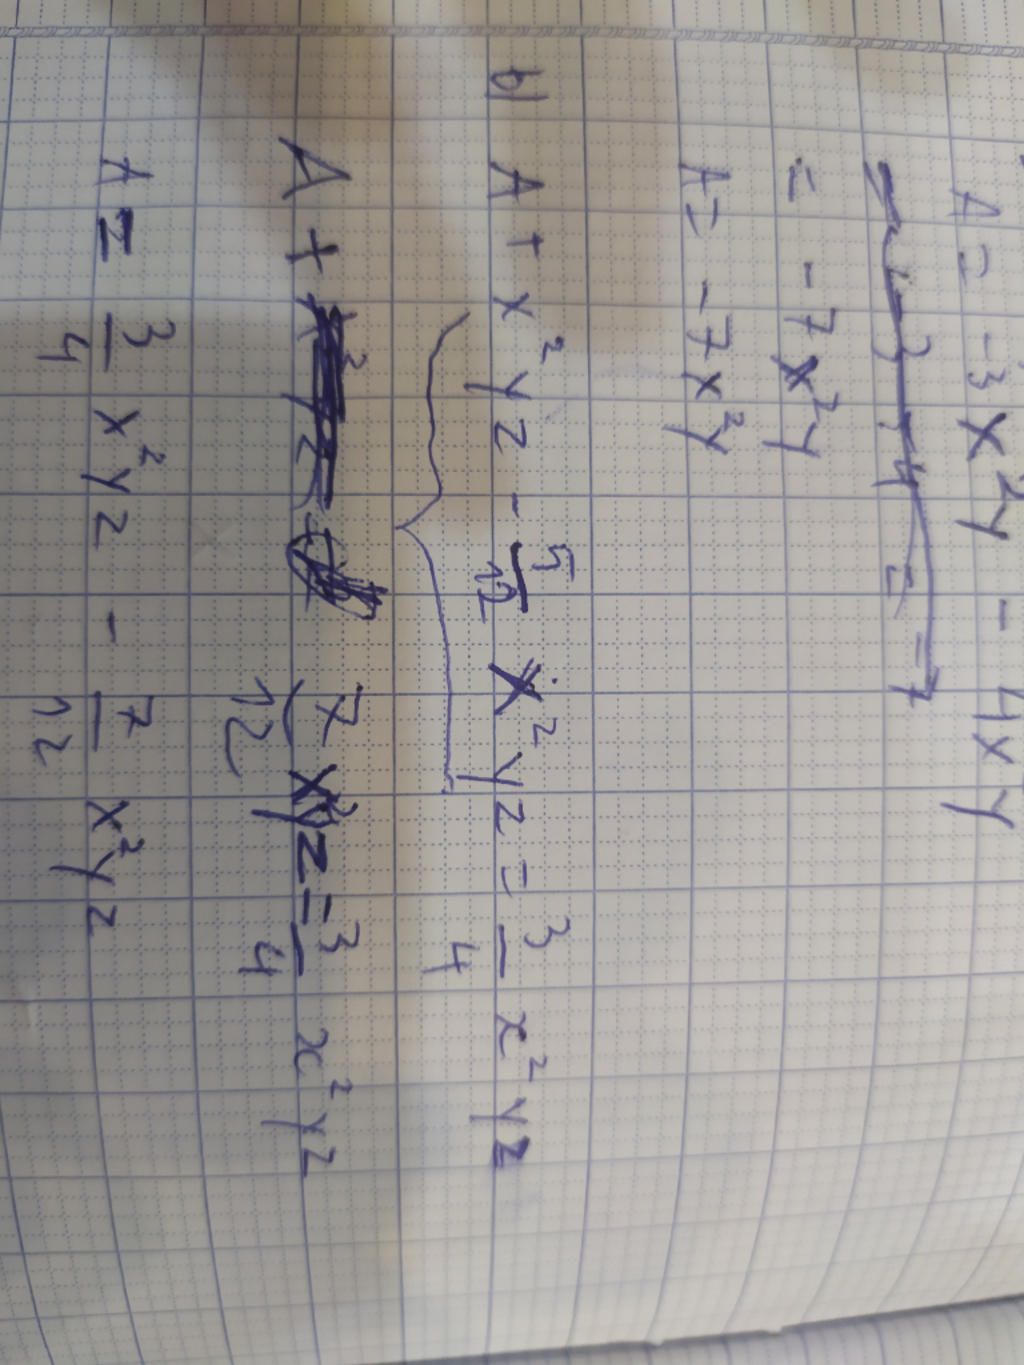 A = -3x²y - 4xy
= -7x²y
A = -7x²y
b) A + x²yz - 5/12 x²yz = 3/4 x²yz
A + 7/12 x²yz = 3/4 x²yz
A = 3/4 x²yz - 7/12 x²yz